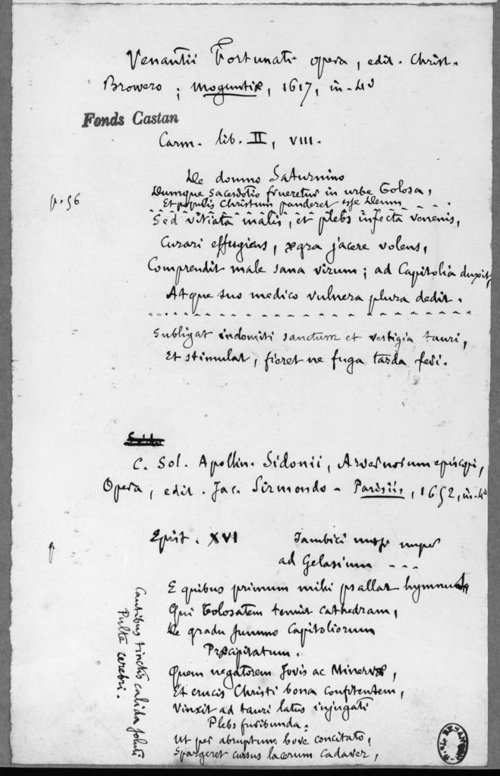 Venantii Fortunati opera, edit. Christ.
Browero ; Moguntiæ, 1617, in-4º
Fonds Castan
Carm. lib. II, VIII.
De domno Saturnino
Dumque sacerdotio frueretur in urbe Tolosa,
p. 56
Et populis Christum panderet esse Deum
Sed vitiata malis, et plebs infecta venenis,
Curari effugiens, ægra jacere volens,
Comprendit male sana virum ; ad Capitolia duxit,
Atque suo medico vulnera plura dedit.
Subligat indomiti sanctum et vestigia tauri,
Et stimulat, fieret ne fuga tarda feri.
C. Sol. Apollin. Sidonii, Arvernorum episcopi,
Opera, edit. Jac. Sirmondo - Parisiis, 1652, in-4º
Epist. XVI
Iambici nuper
ad Gelasium - - -
E quibus primum mihi psallat hymnus
Qui Tolosatem tenuit cathedram,
De gradu summo Capitoliorum
Præcipitatum.
Quem negatorem Jovis ac Minervæ,
Et crucis Christi bona confitentem,
Vinxit ad tauri latus injugati
Plebs furibunda :
Ut per abruptum bove concitato,
Spargeret cursus lacerum cadaver,
Cautibus tinctis calida soluti
Pulte cerebri.